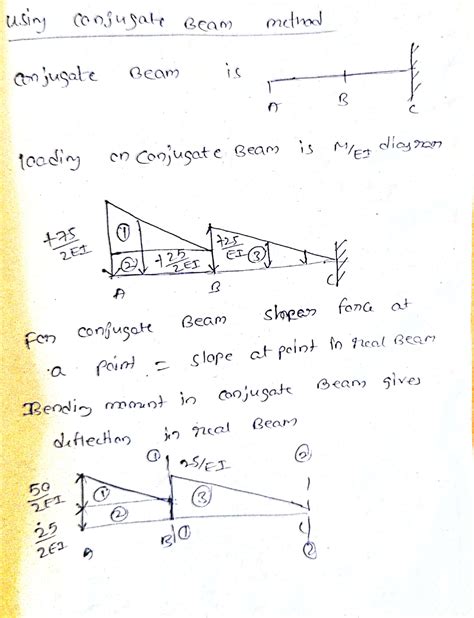 using conjugate Beam method
Conjugate Beam is
A B C
loading on Conjugate Beam is M/EI diagram
+75/2EI ① ② +25/2EI +25/EI ③
A B C
For conjugate Beam shear force at
a point = slope at point in real Beam
Bending moment in conjugate Beam gives
deflection in real Beam
① 25/EI ②
50/2EI ① ③
25/2EI ②
A B ① C
②